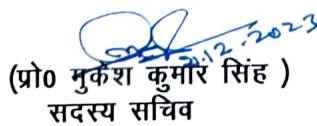 21.12.2023
(प्रो0 मुकेश कुमार सिंह )
सदस्य सचिव